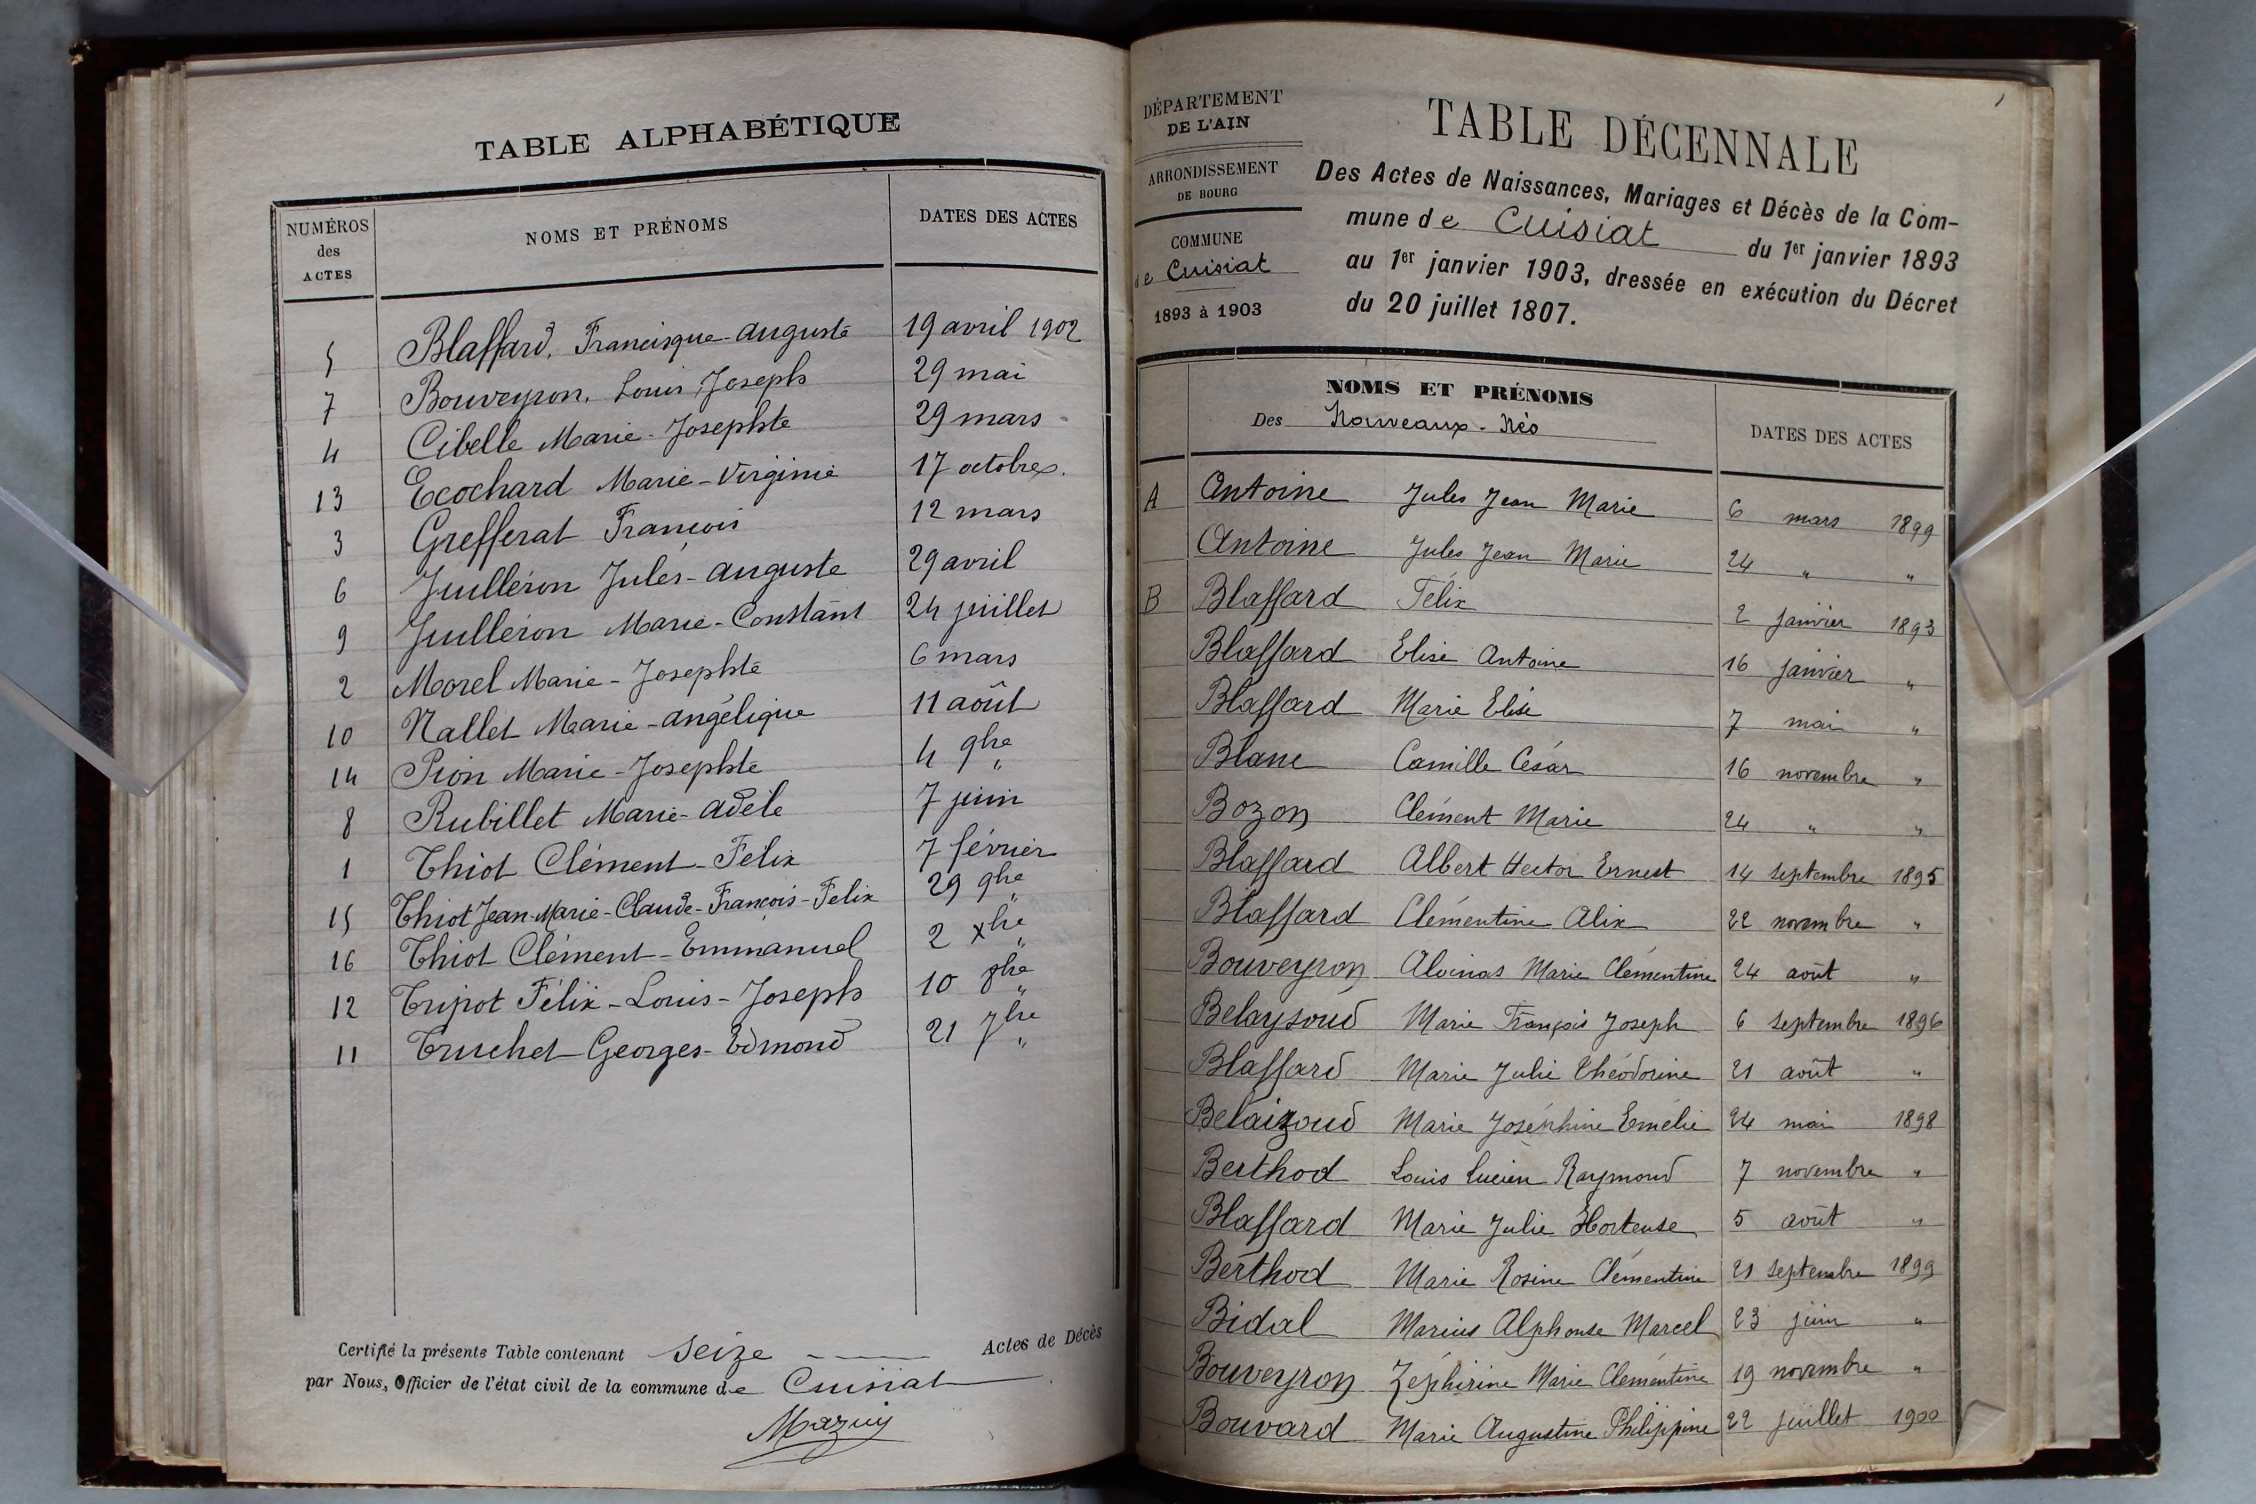 TABLE ALPHABÉTIQUE
NUMÉROS des ACTES NOMS ET PRÉNOMS DATES DES ACTES
5 Blaffard, Francisque-Auguste 19 avril 1902
7 Bouveyron, Louis Joseph 29 mai
4 Cibelle Marie-Josephte 29 mars
13 Ecochard Marie-Virginie 17 octobre
3 Grefferat François 12 mars
6 Juilléron Jules-Auguste 29 avril
9 Juilléron Marie-Constant 24 juillet
2 Morel Marie-Josephte 6 mars
10 Nallet Marie-Angélique 11 août
14 Pion Marie-Josephte 4 9bre "
8 Rubillet Marie-Adèle 7 juin
1 Thiot Clément-Félix 7 février
15 Thiot Jean-Marie-Claude-François-Felix 29 9bre "
16 Thiot Clément-Emmanuel 2 xbre "
12 Tripot Félix-Louis-Joseph 10 8bre "
11 Truchet Georges-Edmond 21 7bre "
Certifié la présente Table contenant Seize Actes de Décès
par Nous, Officier de l'état civil de la commune de Cuisiat
Mazuy
DÉPARTEMENT
DE L'AIN
ARRONDISSEMENT
DE BOURG
COMMUNE
de Cuisiat
1893 à 1903
TABLE DÉCENNALE
Des Actes de Naissances, Mariages et Décès de la Com-
mune de Cuisiat du 1er janvier 1893
au 1er janvier 1903, dressée en exécution du Décret
du 20 juillet 1807.
NOMS ET PRÉNOMS
Des Nouveaux-Nés DATES DES ACTES
A Antoine Jules Jean Marie 6 mars 1899
Antoine Jules Jean Marie 24 " "
B Blaffard Félix 2 janvier 1893
Blaffard Elise Antoine 16 janvier "
Blaffard Marie Elise 7 mai "
Blanc Camille César 16 novembre "
Bozon Clément Marie 24 " "
Blaffard Albert Hector Ernest 14 septembre 1895
Blaffard Clémentine Alix 22 novembre "
Bouveyron Marie Clémentine 24 août "
Belaysoud Marie François Joseph 6 septembre 1896
Blaffard Marie Julie Théodorine 21 août "
Belaizoud Marie Joséphine Emélie 24 mai 1898
Berthod Louis Lucien Raymond 7 novembre "
Blaffard Marie Julie Hortense 5 août "
Berthod Marie Rosine Clémentine 21 septembre 1899
Bidal Marius Alphonse Marcel 23 juin "
Bouveyron Zéphirine Marie Clémentine 19 novembre "
Bouvard Marie Augustine Philippine 22 juillet 1900